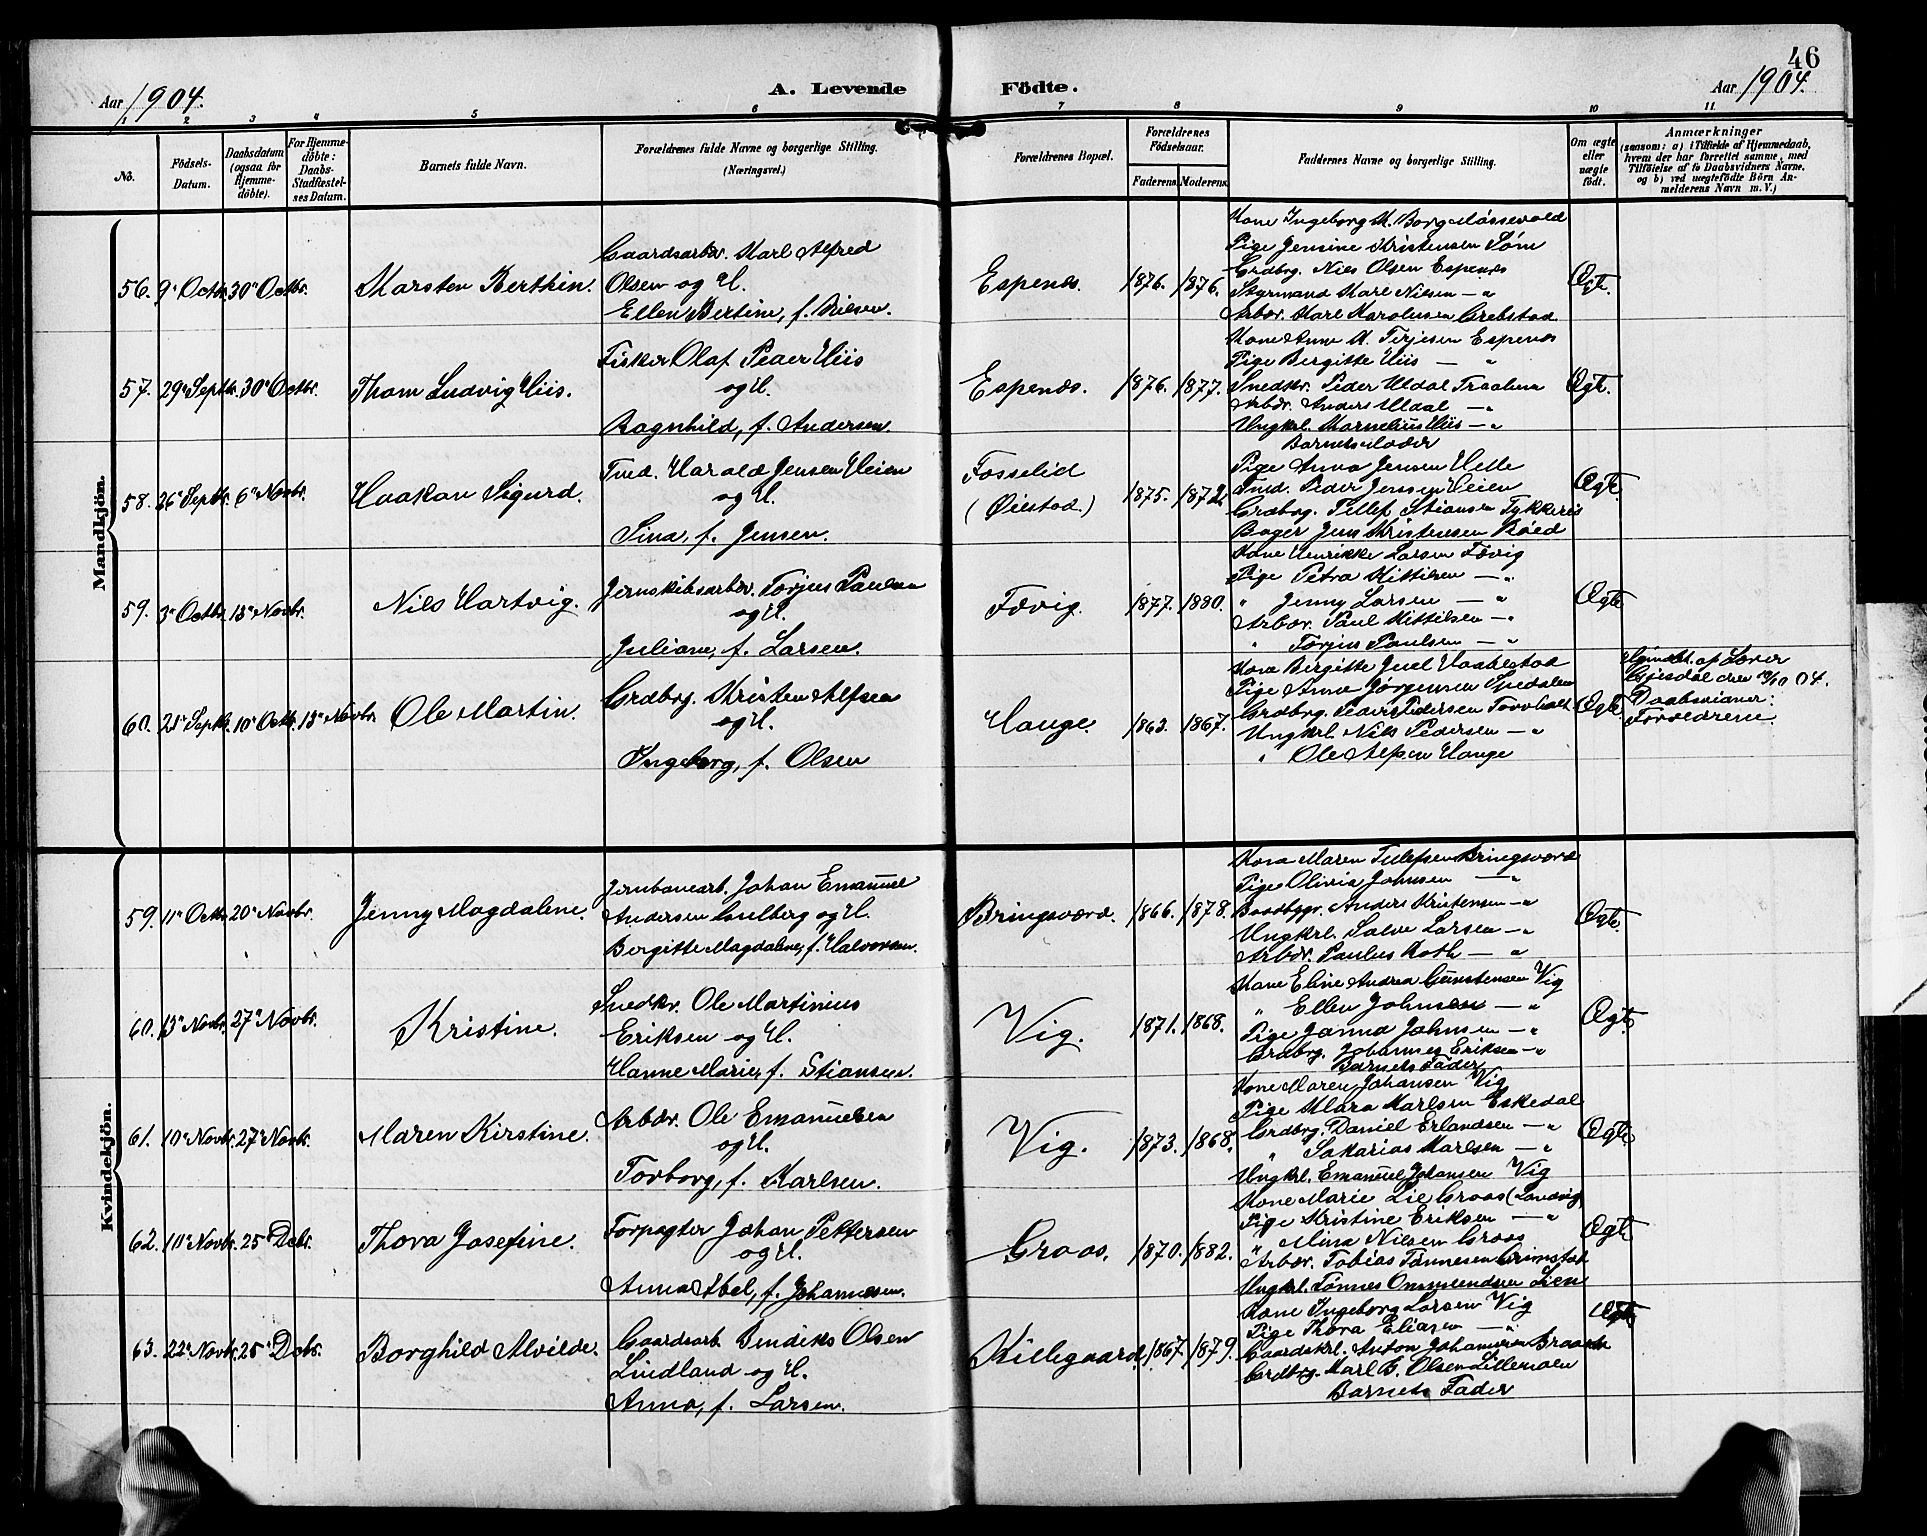 46
Aar 1904.
A. Levende Födte.
Aar 1904.
1 2 3 4 5 6 7 8 9 10 11
No.
Födsels-Datum.
Daabsdatum (ogsaa for Hjemme-döbte).
For Hjemme-döbte: Daabs-Stadfæstel-ses Datum.
Barnets fulde Navn.
Forældrenes fulde Navne og borgerlige Stilling.
(Næringsvei.)
Forældrenes Bopæl.
Forældrenes Födselsaar.
Faderens. Moderens.
Faddernes Navne og borgerlige Stilling.
Om ægte eller uægte födt.
Anmærkninger
(saasom: a) i Tilfælde af Hjemmedaab, hvem der har forrettet samme, med Tilföielse af to Daabsvidners Navne, og b) ved uægtefödte Börn An-melderens Navn m. V.)
Mandkjön.
56. 9' Octbr. 30' Octbr. Karsten Berthin.
Gaardsarbr. Karl Alfred
Olsen og H.
Ellen Bertine, f. Nielsen.
Espenes. 1876. 1876.
Kone Ingeborg K. Borg Mossevold
Pige Jensine Kristensen Söm
Grdbrg. Niels Olsen Espenes
Styrmand Karl Nilsen — "
Arbdr. Karl Karolusen Grebstad
Ægt.
57. 29' Septbr. 30' Octbr. Thom Ludvig Hiis.
Fisker Olaf Peder Hiis
og H.
Ragnhild, f. Andersen.
Espenes. 1876. 1877.
Kone Anna K. Terjesen Espenes
Pige Bergitte Hiis — "
Snedkr. Peder Udal Traalum
Arbdr. Anders Udal — "
Ungkrl. Kornelius Hiis — "
Barnets Moder
Ægt.
58. 26' Septbr. 6' Novbr. Haakon Sigurd.
Tmd. Harald Jensen Heien
og H.
Sina, f. Jensen.
Fosselid
(Öiestad.)
1875. 1872.
Pige Anna Jensen Helle
Tmd. Peder Jensen Heien
Grdbrg. Tellef Stiansen Tykkeres
Bager Jens Kristensen Röed
Ægt.
59. 3' Octbr. 13' Novbr. Nils Hartvig.
Jernskibsarbdr. Torjus Paulsen
og H.
Juliane, f. Larsen.
Fævig. 1877. 1880.
Kone Henrikke Larsen Fævig
Pige Petra Kittilsen — "
" Jenny Larsen — "
Arbdr. Paul Kittilsen — "
" Torjus Paulsen — "
Ægte
60. 21' Septbr. 10' Octbr. 13' Novbr. Ole Martin.
Grdbrg. Kristen Alfsen
og H.
Ingeborg, f. Olsen
Hauge. 1863. 1867.
Kone Bergitte Juel Haabestad
Pige Anna Jörgensen Spedalen
Grdbrg. Peder Pedersen Torvholt
Ungkrl. Nils Pedersen — "
" Ole Alfsen Hauge
Ægt.
Hjemdbt. af Lærer
Gjesdal den 10/10 04.
Daabsvidner:
Forældrene.
Kvindekjön.
59. 11' Octbr. 20' Novbr. Jenny Magdalene.
Jernbanearb. Johan Emanuel
Andersen Gulberg og H.
Bergitte Magdalene, f. Halvorsen.
Bringsværd. 1866. 1878.
Kone Maren Tellefsen Bringsværd
Pige Olivia Johnsen — "
Baadbygr. Anders Kristensen — "
Ungkrl. Salve Larsen — "
Arbdr. Paulus Roth — "
Ægte.
60. 13' Novbr. 27' Novbr. Kristine.
Snedkr. Ole Martinius
Eriksen og H.
Hanne Marie, f. Stiansen.
Vig. 1871. 1868.
Kone Eline Andrea Gunstensen Vig
" Ellen Johnsen — "
Pige Janna Johnsen — "
Grdbrg. Johannes Eriksen — "
Barnets Fader
Ægte.
61. 10' Novbr. 27' Novbr. Maren Kirstine.
Arbdr. Ole Emanuelsen
og H.
Torborg, f. Karlsen.
Vig. 1873. 1868.
Kone Maren Johansen Vig
Pige Klara Karlsen Eskedal
Grdbrg. Daniel Erlandsen — "
" Sakarias Karlsen — "
Ungkrl. Emanuel Johansen Vig
Ægte.
62. 10' Novbr. 25' Dcbr. Thora Josefine.
Forpagter Johan Pettersen
og H.
Anna Abel, f. Johannesen.
Groos. 1870. 1882.
Kone Marie Lie Groos (Landvig)
Pige Kristine Eriksen — "
" Mina Nielsen Groos
Arbdr. Tobias Tönnesen Grimstad
Ungkrl. Tönnes Ommundsen Lien
Ægte
63. 22' Novbr. 25' Dcbr. Borghild Alvilde.
Gaardsarb. Bendiks Olsen
Lindland og H.
Anna, f. Larsen.
Killegaard. 1867. 1879.
Kone Ingeborg Larsen Vig
Pige Thora Eliasen — "
Gaardskrl. Anton Johannesen
Grdbrg. Karl B. Olsen Lillemoen
Barnets Fader
Ægte